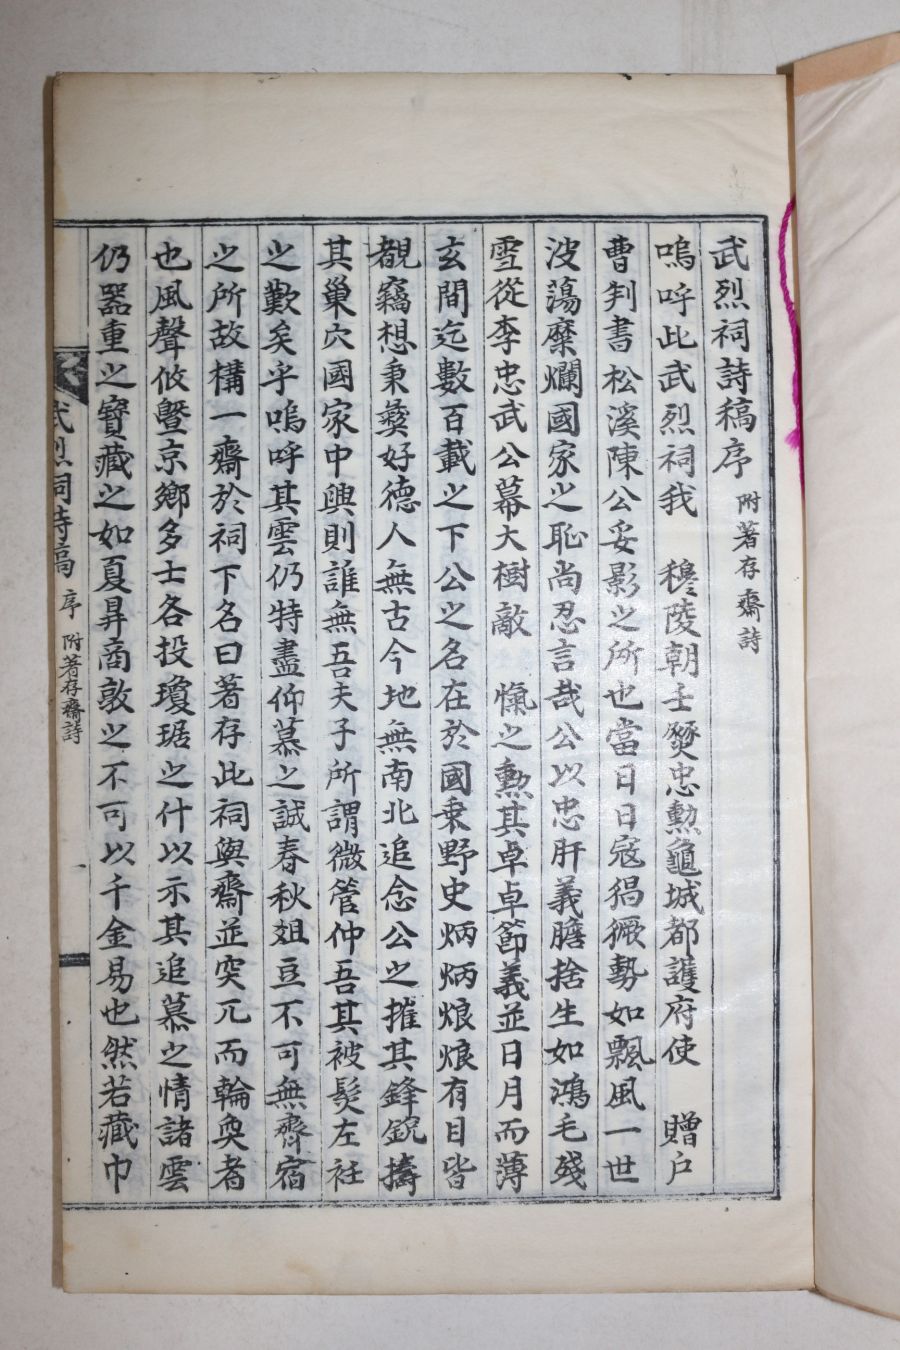 武烈祠詩稿序 附著存齋詩
嗚呼此武烈祠我 穆陵朝壬燹忠勲龜城都護府使 贈戶
曹判書松溪陳公妥影之所也當日日寇猖獗勢如飄風一世
波蕩糜爛國家之恥尚忍言哉公以忠肝義膽捨生如鴻毛殘
雪從李忠武公幕大樹敵 愾之勲其卓卓節義並日月而薄
玄間迄數百載之下公之名在於國乘野史炳炳烺烺有目皆
覩竊想秉彜好德人無古今地無南北追念公之摧其鋒銳擣
其巢穴國家中興則誰無吾夫子所謂微管仲吾其被髮左衽
之歎矣乎嗚呼其雲仍特盡仰慕之誠春秋俎豆不可無齊宿
之所故構一齋於祠下名曰著存此祠與齋並突兀而輪奐者
也風聲攸曁京鄉多士各投瓊琚之什以示其追慕之情諸雲
仍器重之寶藏之如夏鼎商敦之不可以千金易也然若藏巾
武烈祠詩稿 序 附著存齋詩